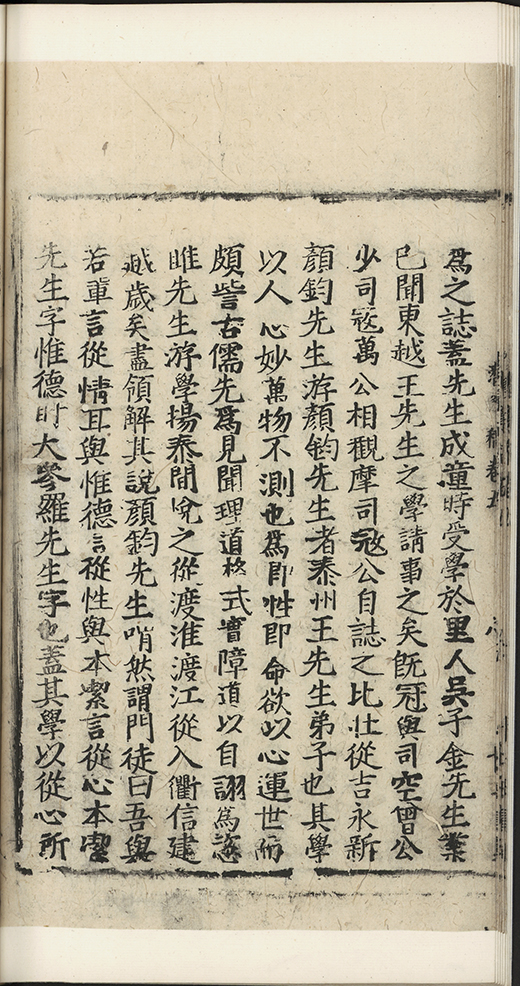 為之誌蓋先生成童時受學於里人吳子金先生業
已聞東越王先生之學請事之矣旣冠與司空曾公
少司寇萬公相觀摩司寇公自誌之比壯從吉永新
顏鈞先生游顏鈞先生者泰州王先生弟子也其學
以人心妙萬物不測也為即性即命欲以心運世而
頗訾古儒先為見聞理道格式實障道以自詡為恣
睢先生游學揚泰間悅之從渡淮渡江從入衢信建
越歲矣盡領解其說顏鈞先生喟然謂門徒曰吾與
若輩言從情耳與惟德言從性與本潔言從心本潔
先生字惟德時大參羅先生字也蓋其學以從心所